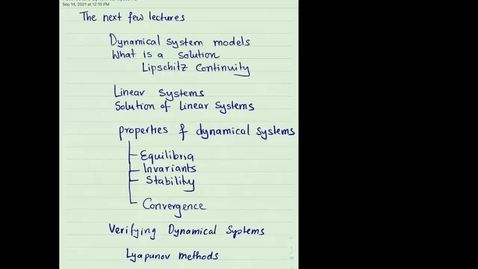 Sep 14, 2021 at 12:10 PM
The next few lectures
Dynamical system models
What is a solution
Lipschitz Continuity
Linear Systems
Solution of Linear Systems
properties of dynamical systems
Equilibria
Invariants
Stability
Convergence
Verifying Dynamical Systems
Lyapunov methods